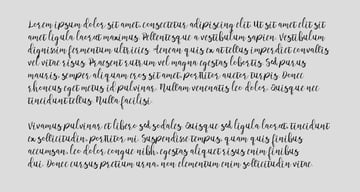 Lorem ipsum dolor sit amet, consectetur adipiscing elit. Ut sit amet elit sit
amet ligula laoreet maximus. Pellentesque a vestibulum sapien. Vestibulum
dignissim fermentum ultricies. Aenean quis ex at tellus imperdiet convallis
vel vitae risus. Praesent rutrum vel magna egestas lobortis. Sed purus
mauris, semper aliquam eros sit amet, porttitor auctor turpis. Donec
rhoncus eget metus id pulvinar. Nullam venenatis leo dolor. Quisque nec
tincidunt tellus. Nulla facilisi.
Vivamus pulvinar et libero sed sodales. Quisque sed ligula laoreet, tincidunt
ex sollicitudin, porttitor mi. Suspendisse tempus, quam quis finibus
accumsan, leo dolor congue nibh, egestas aliquet risus enim finibus
dui. Donec cursus pretium urna, non elementum enim sollicitudin vitae.